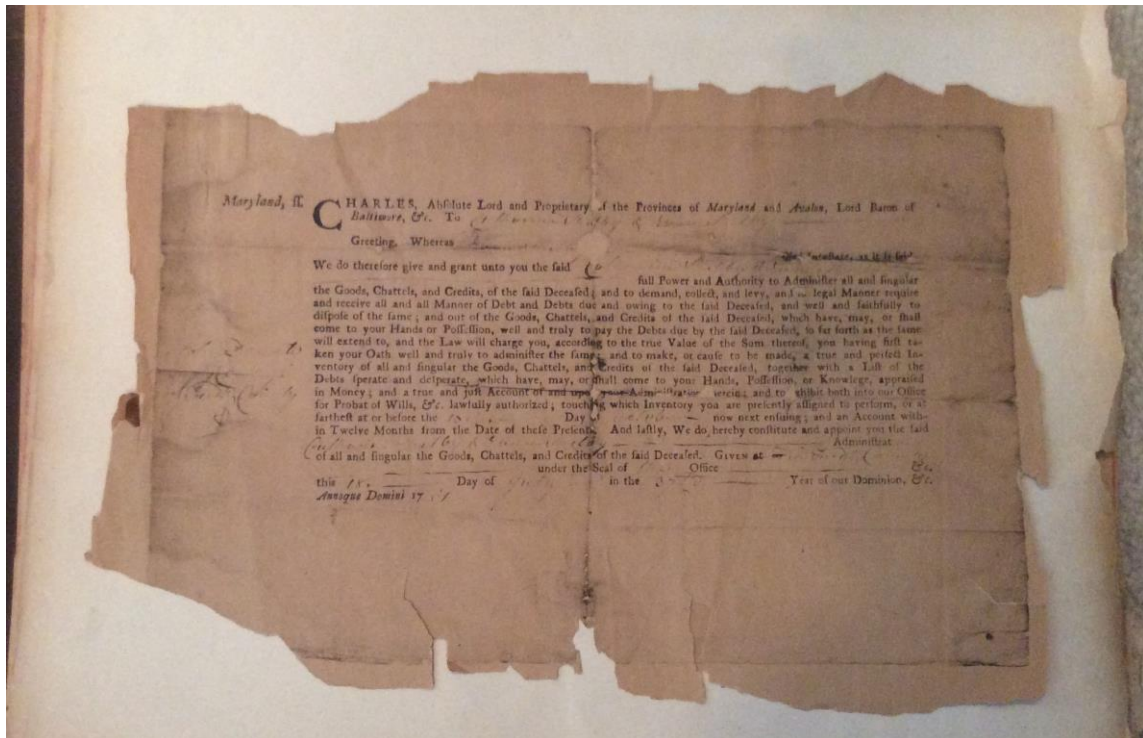 Maryland, ſſ. CHARLES, Abſolute Lord and Proprietary of the Provinces of Maryland and Avalon, Lord Baron of
Baltimore, &c. To
Greeting. Whereas
died Inteſtate, as it is ſaid
We do therefore give and grant unto you the ſaid
full Power and Authority to Adminiſter all and ſingular
the Goods, Chattels, and Credits, of the ſaid Deceaſed; and to demand, collect, and levy, and in legal Manner require
and receive all and all Manner of Debt and Debts due and owing to the ſaid Deceaſed, and well and faithfully to
diſpoſe of the ſame; and out of the Goods, Chattels, and Credits of the ſaid Deceaſed, which have, may, or ſhall
come to your Hands or Poſſeſſion, well and truly to pay the Debts due by the ſaid Deceaſed, ſo far forth as the ſame
will extend to, and the Law will charge you, according to the true Value of the Sum thereof, you having firſt ta-
ken your Oath well and truly to adminiſter the ſame; and to make, or cauſe to be made, a true and perfect In-
ventory of all and ſingular the Goods, Chattels, and Credits of the ſaid Deceaſed, together with a Liſt of the
Debts ſperate and deſperate, which have, may, or ſhall come to your Hands, Poſſeſſion, or Knowlege, appraiſed
in Money; and a true and juſt Account of and upon your Adminiſtration herein; and to exhibit both into our Office
for Probat of Wills, &c. lawfully authorized; touching which Inventory you are preſently aſſigned to perform, or at
fartheſt at or before the Day of now next enſuing; and an Account with-
in Twelve Months from the Date of theſe Preſents. And laſtly, We do hereby conſtitute and appoint you the ſaid
Adminiſtrat
of all and ſingular the Goods, Chattels, and Credits of the ſaid Deceaſed. GIVEN at
under the Seal of Office &c.
this Day of in the Year of our Dominion, &c.
Annoque Domini 17